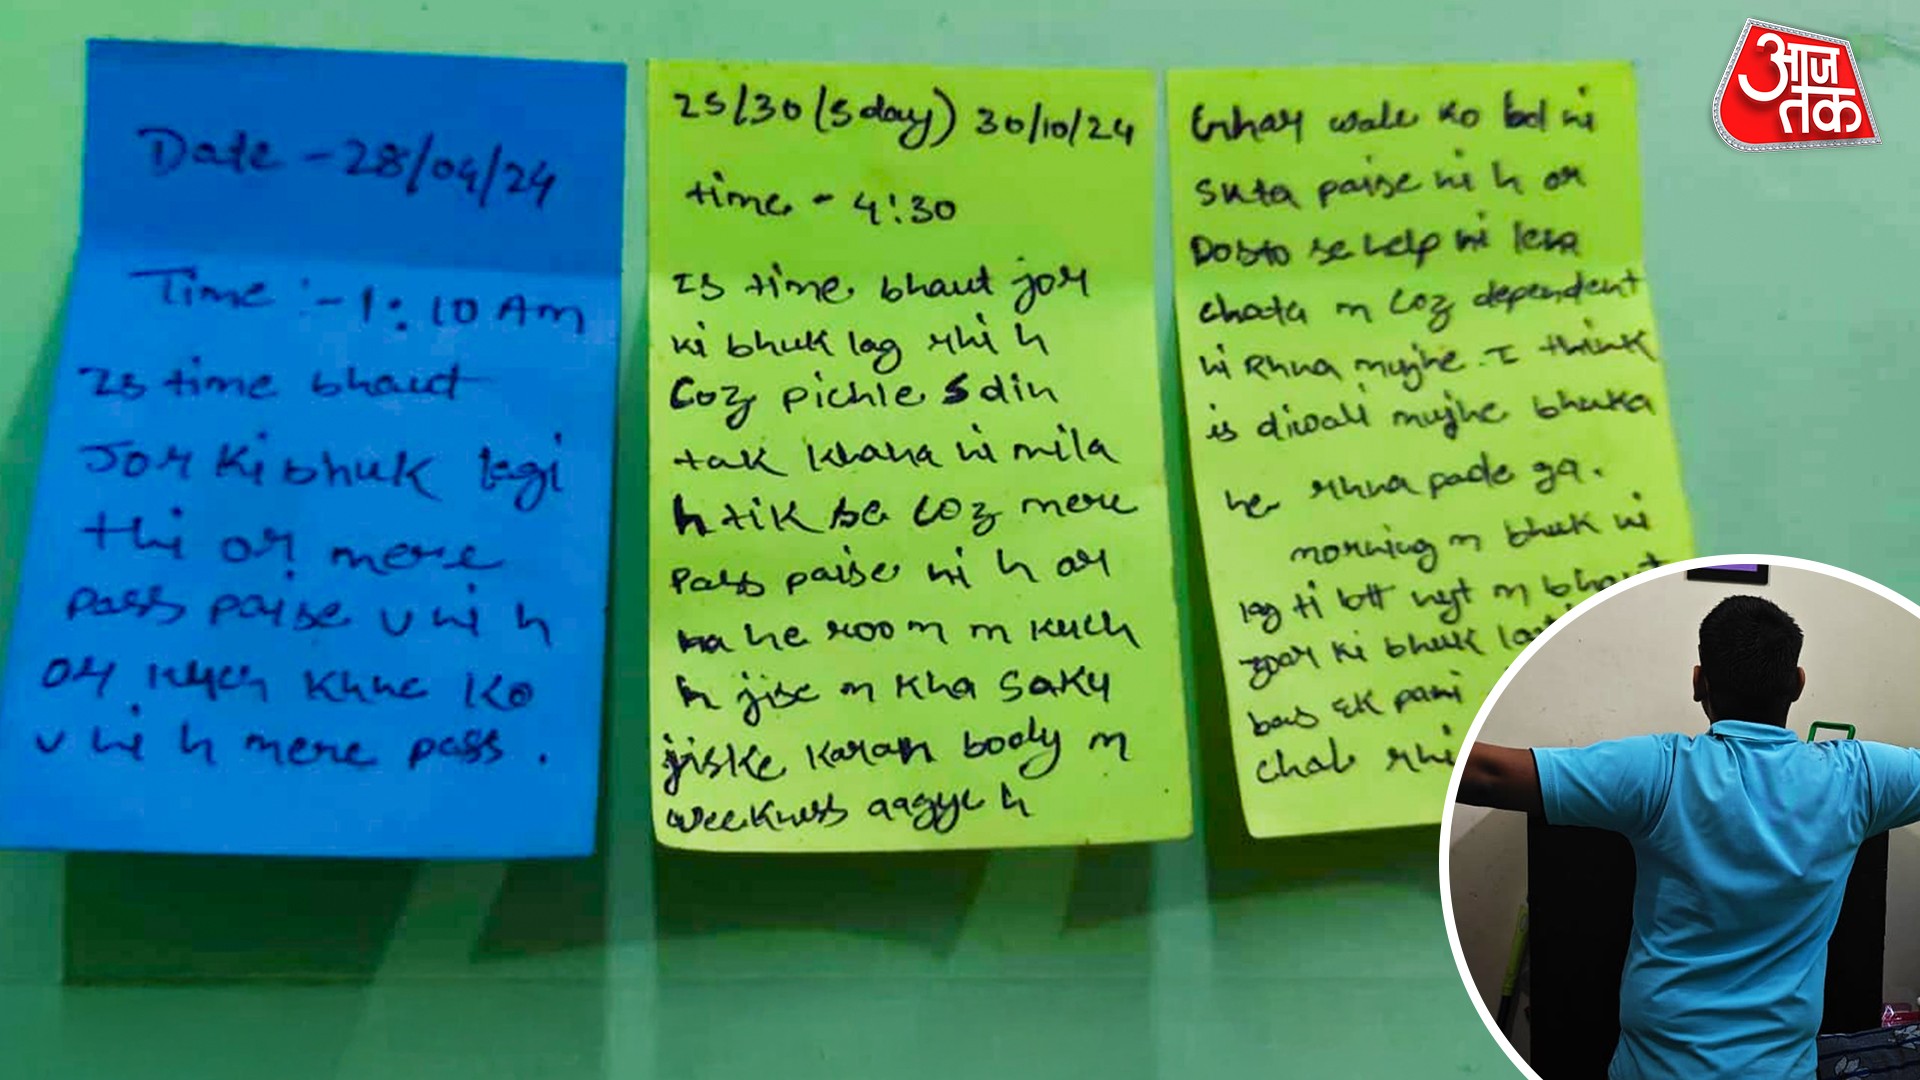 Date - 28/04/24
Time :- 1:10 Am
Is time bhaut
Jor Ki bhuk lagi
thi or mere
pass paise v ni h
or kuch khne Ko
v ni h mere pass.
25/30 (5 day) 30/10/24
time - 4:30
Is time bhaut jor
ki bhuk lag rhi h
Coz pichle 5 din
tak khana ni mila
h tik se coz mere
Pass paise ni h or
na he room m kuch
h jise m kha saku
jiske karan body m
weekness aagye h
Ghar wale ko bol ni
skta paise ni h or
Dosto se help ni lena
chata m coz dependent
ni Rhna mujhe. I think
is diwali mujhe bhuka
he rhna pade ga.
morning m bhuk ni
lag ti btt nyt m bhaut
zoar ki bhuk
bas ek pani
chal rhi
आज
तक